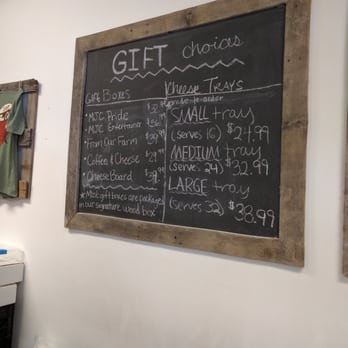 GIFT choices
Gift Boxes
• MJC Pride
• MJC Entertainer
• From Our Farm
• Coffee & Cheese
• Cheese Board
* Most gift boxes are packaged
in our signature wood box
Kheese TRAYS
made-to-order
SMALL tray
(serves 16) $24.99
MEDIUM tray
(serves 24) $32.99
LARGE tray
(serves 32) $38.99